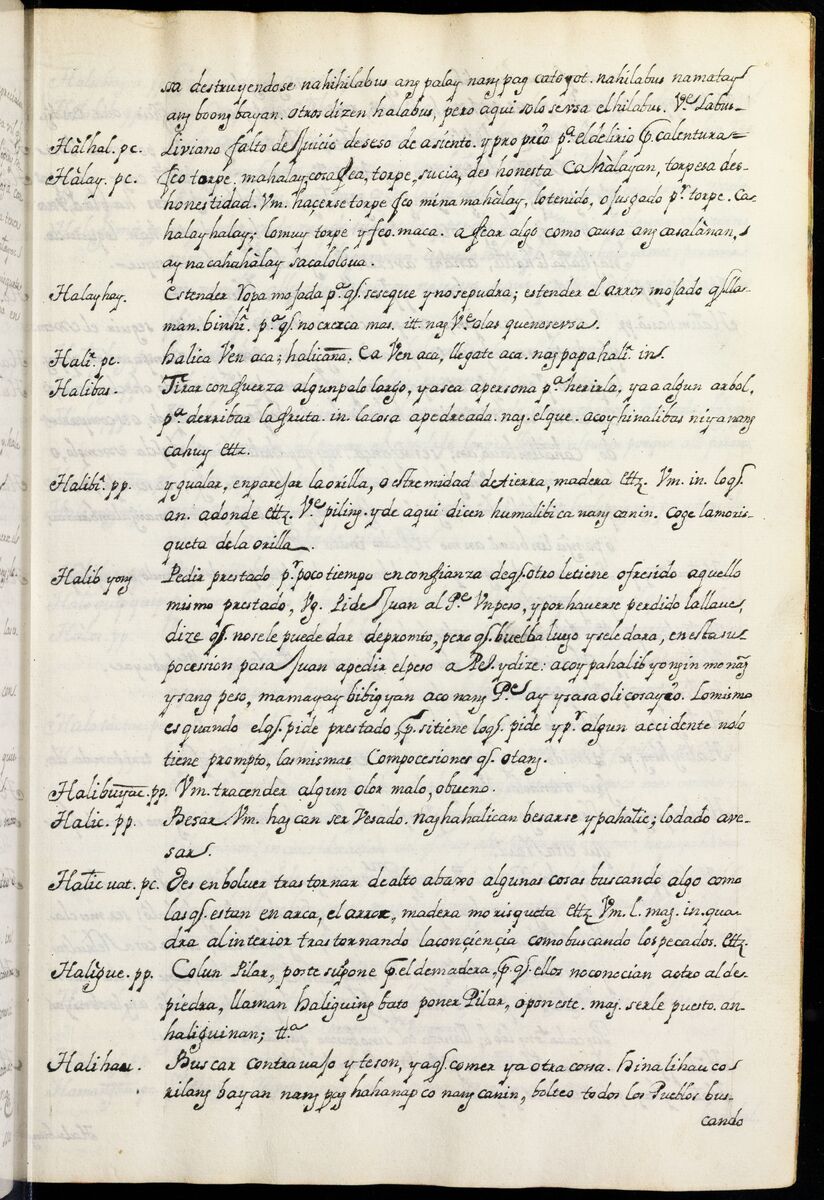 sa destruyendose nahihilabus ang palay nang pag catoyot. nahilabus namatay
ang boong bayan. otros dizen halabus, pero aqui solo se vsa el hilabus. Ve Labus.
Hàlhal. pc. Liviano falto de Juicio de seso de asiento. y proprio pa. el delirio p. calentura
Hàlay. pc. feo torpe, mahalay, cosa fea, torpe, sucia, des honesta Cahàlayan, torpesa des-
honestidad. Vm. haçerse torpe feo mina mahàlay, lo tenido, o jusgado pr. torpe. Ca-
halay halay; lo muy torpe y feo. maca. a fear algo como causa ang casalànan,
ay nacahahàlay sa calolova.
Halayhay. Estender Ropa mojada pa. qs. se seque y no se pudra; estender el arros mojado qs. lla-
man. binhi. pa. qs. no cresca mas. itt. nag Ve. alas que no se vsa.
Hali. pc. halica Ven aca; halicana. Ea Ven aca, llegate aca. nagpapahali. in.
Halibas. Tirar con fuerza algun palo largo, ya sea a persona pa. herirla, ya a algun arbol,
pa. derribar la fruta. in. la cosa apedreada. nag. el que. acoy hinalibas niya nang
cahuy ettz.
Halibi. pp. ygualar, enparejar la orilla, o estremidad de tierra, madera ettz. Vm. in. loqs.
an. adonde ettz. Ve. piling. y de aqui dicen humalibi ca nang canin. Coge la moris-
queta de la orilla.
Halib yong Pedir prestado pr. poco tiempo en confianza de qs. otro le tiene ofresido aquello
mismo prestado, Vg. Pide Juan al Pe. Vn peso, y por haverse perdido la llave,
dize qs. no se le puede dar de pronto, pero qs. buelba luego y se le dara, en esta su
pocession pasa Juan a pedir el peso a Pe. y dize: acoy pahalib yongin mo nang
ysang peso, mamayay bibigyan aco nang Pe. ay ysasaoli co sayo. Lo mismo
es quando el qs. pide prestado, p. si tiene lo qs. pide y pr. algun accidente no lo
tiene prompto, las mismas Compocesiones qs. otang.
Halibuyac. pp. Vm. tracender algun olor malo, o bueno.
Halic. pp. Besar. Vm. hagcan ser Vesado. naghahalican besarse ypahalic; lo dado a ve-
sar.
Halic uat. pc. Des enboluer trastornar de alto abaxo algunas cosas buscando algo como
las qs. estan en arca, el arros, madera morisqueta ettz. Vm. l. mag. in. qua-
dra al interior trastornando la conçiençia como buscando los pecados. ettz.
Haligue. pp. Colun Pilar, poste supone p. el de madera, p. qs. ellos no conocian a otro al de
piedra, llaman haliguing bato poner Pilar, o pon este. mag. serle puesto. an-
haliguinan; tta.
Halihau. Buscar con travajo y teson, ya qs. comer ya otra cosa. hinalihau co
rilang bayan nang pag hahanap co nang canin, bolteo todos los Pueblos bus-
cando